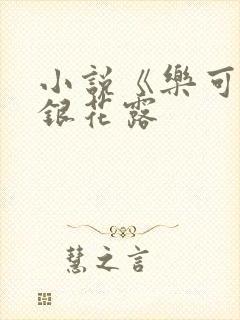 小說《樂可
銀花露
慧之言